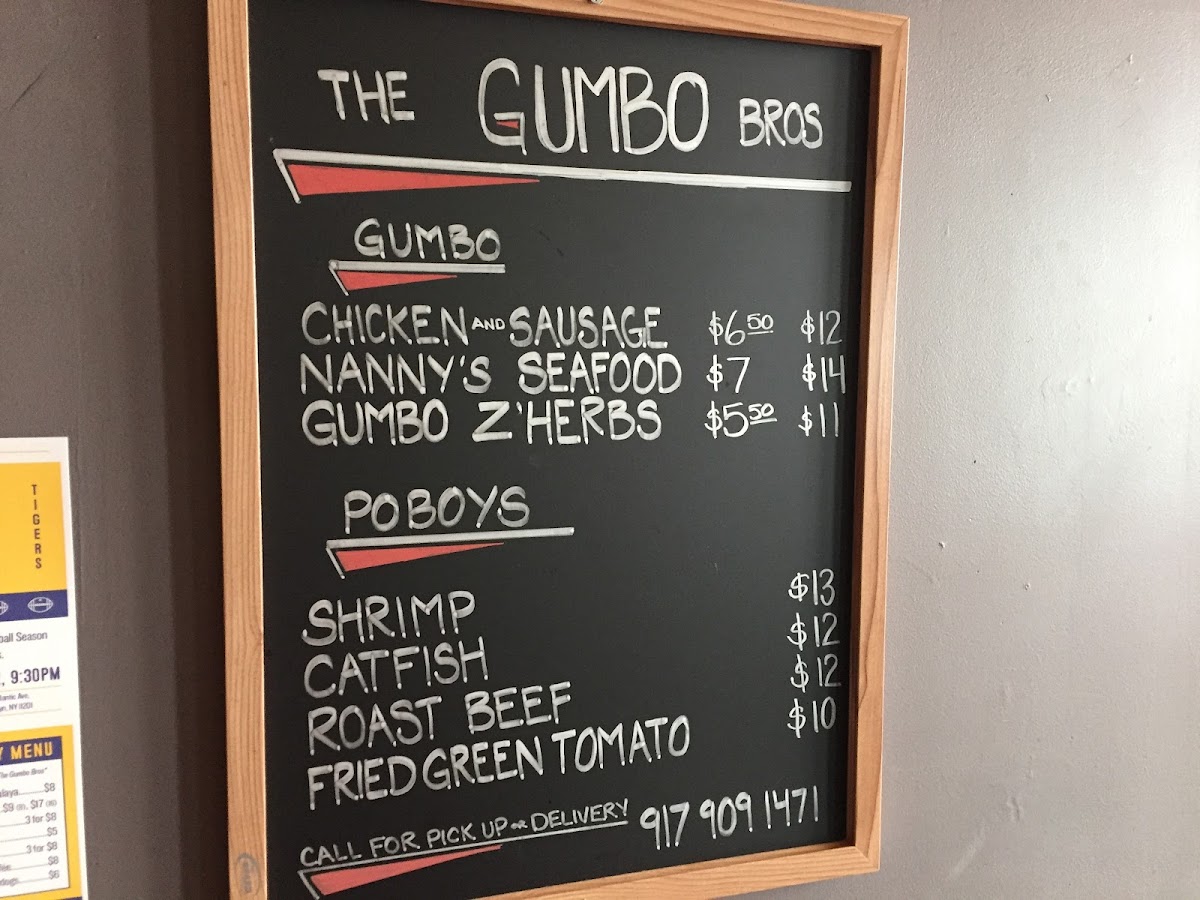 THE GUMBO BROS
GUMBO
CHICKEN AND SAUSAGE $6 50 $12
NANNY'S SEAFOOD $7 $14
GUMBO Z'HERBS $5 50 $11
POBOYS
SHRIMP $13
CATFISH $12
ROAST BEEF $12
FRIED GREEN TOMATO $10
CALL FOR PICK UP OR DELIVERY 917 909 1471
TIGERS
Season
9:30PM
Ave.
NY 11201
MENU
The Gumbo Bros"
$8
$9 $17
3 for $8
$5
3 for $8
$8
$6